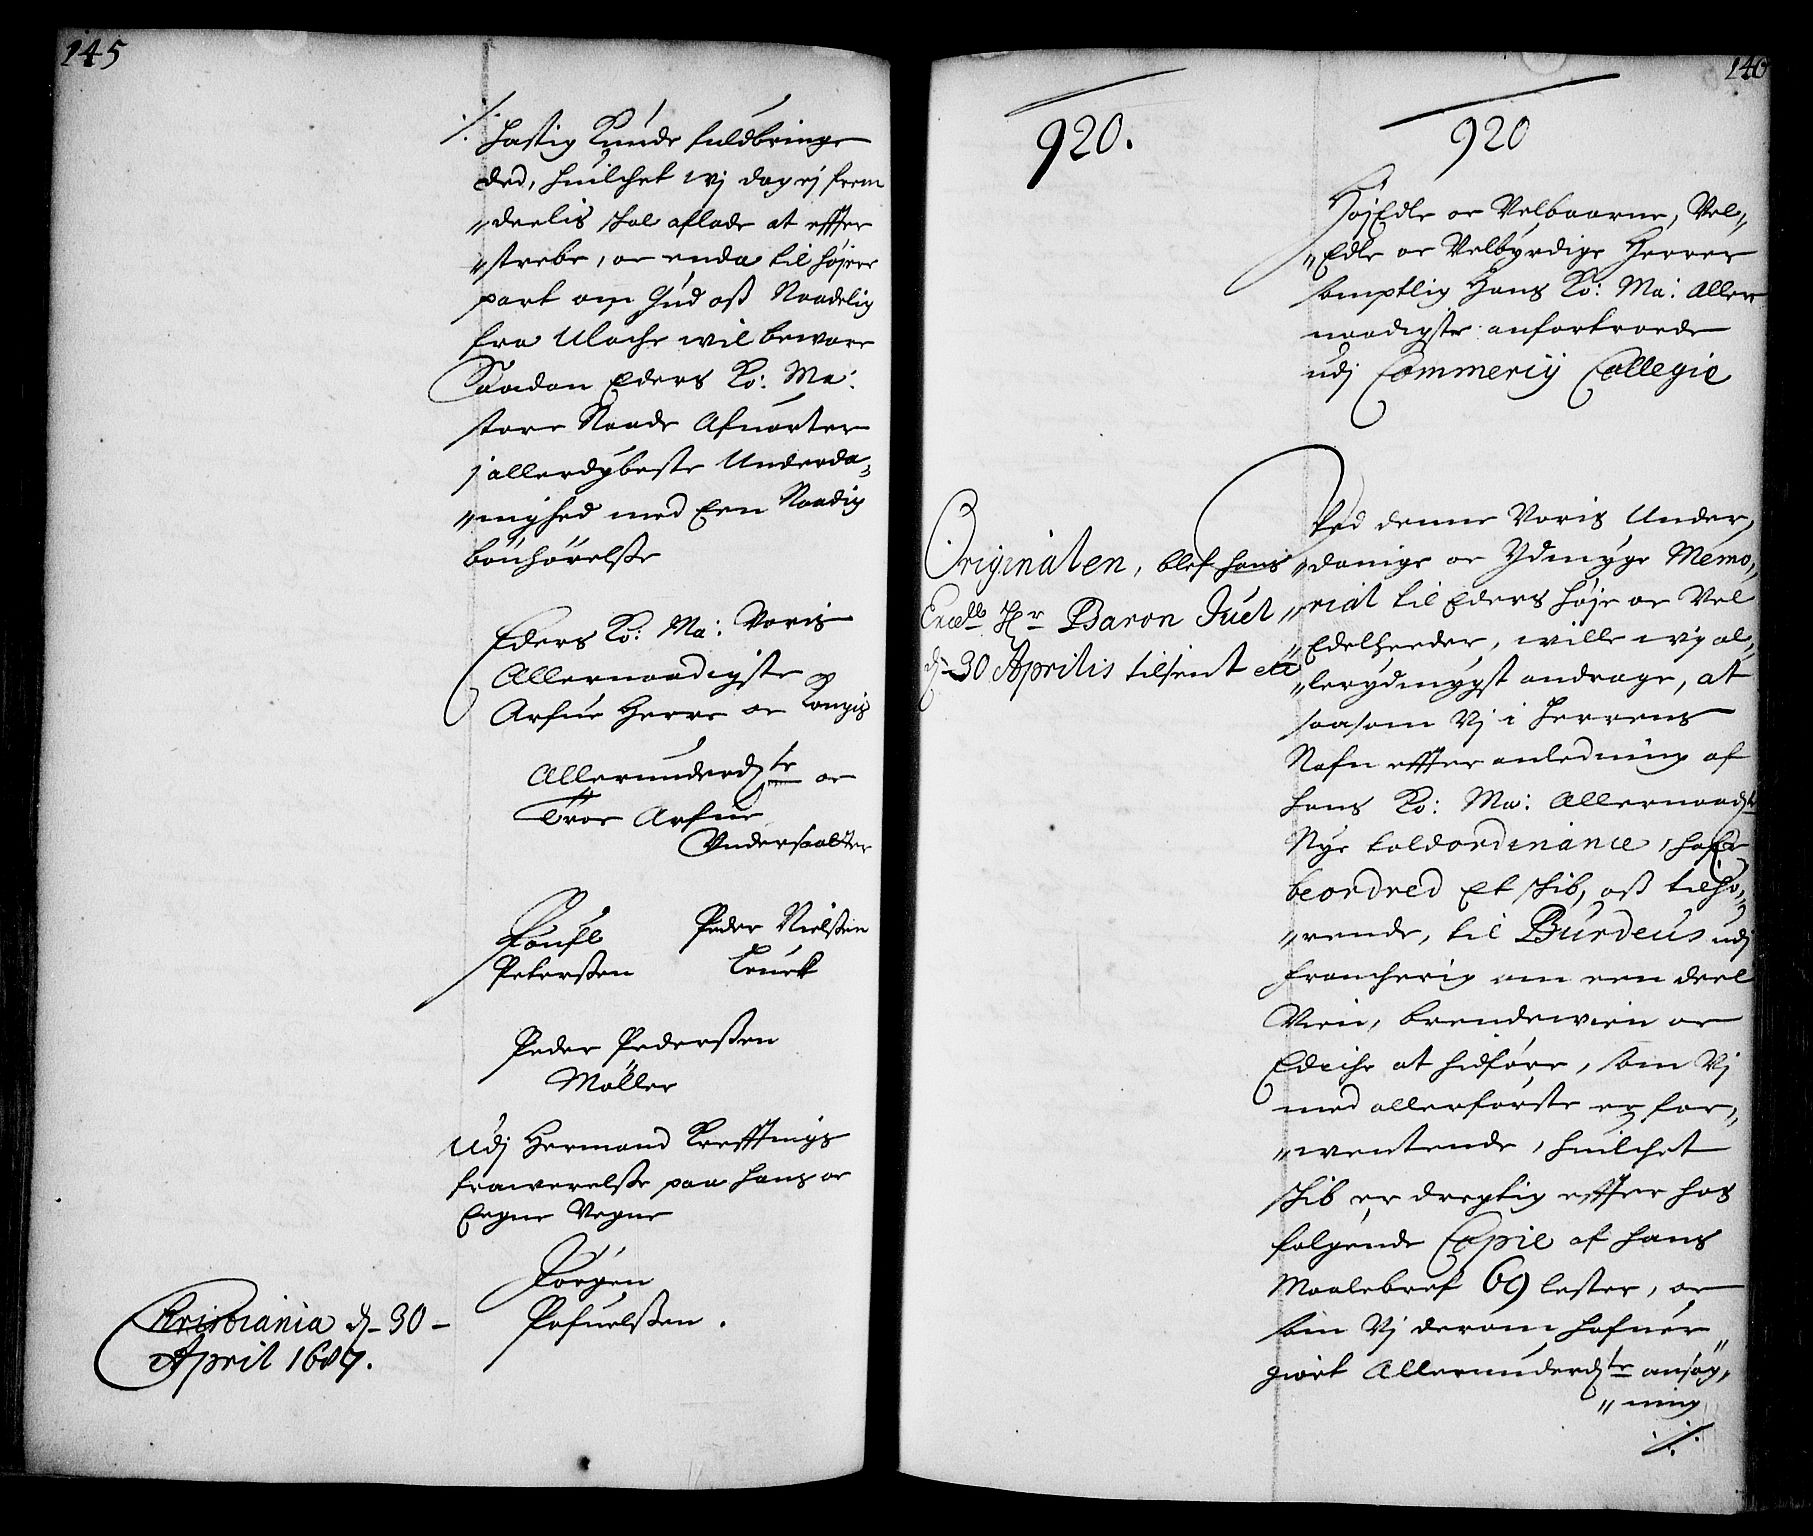 145
hastig Kunde fuldbringe
ded, huilchet wj dog ej frem
deelis skal aflade at effter
strebe, oc enda til højere
part om Gud oß Naadelig
fra Uloche wil beware
Saadan Eders Ko: Ma:
store Naade Afuarter
j allerdybeste Underda,,
,,nighed med Een Naadig
bönhörelsse
Eders Ko: Ma: Voris
Allernaadigste
Arfue Herre oc Kongis
Allerunderd: te oc
Troe Arfue
Undersaatter
Poufl
Petersßen
Peder Nielßen
Leuch
Peder Pederßen
Möller
Udj Hermand Kreffтings
frawerelsße paa hans oc
Eegne Vegne
Jörgen
Pofuelßen.
Christiania d– 30 –
April 1687.
146
920.
920
HøjEdle oc Velbaarne, Vel,,
,,Edle oc Velbyrdige Herrer
samptlig Hans Ko: Ma: Aller
naadigste anfortroede
udj Commercij Collegie
Originalen, blef hans
Excell: Hr Baron Juel
d– 30 Aprilis tilsent etc
Ved denne Voris Under,,
,,danige oc Ydmyge Memo,,
,,rial til Eders høje oc Vel
Edelheeder, wille wj al,,
,,lerydmygst andrage, at
saasom Vj i Herrens
Nafn effter anledning af
hans Ko: Ma: Allernaadste
Nye toldordinance, hafr
beordred Et skib, oß tilhø,,
,,rende, til Burdeus udj
franckerig om een deel
Vien, brendewien oc
Edicke at hidføre, som Vj
med allerførste er for,,
,,wentende, huilchet
skib er dregtig effter hos
følgende Copie af hans
Maalebref 69 lester, oc
som Vj derom hafuer
giort Allerunderd: te ansøg,,
,,ning